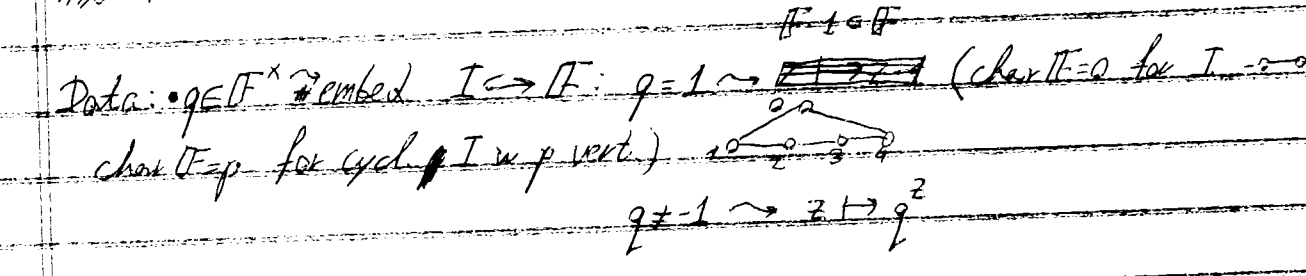 F·1 ∈ F
Data: • q ∈ F^× ⇝ embed I ↪ F: q=1 ⇝ (char F=0 for I
char F=p for cycl. I w p vert.) 1 2 3 4
q≠-1 ⇝ z ↦ q^z